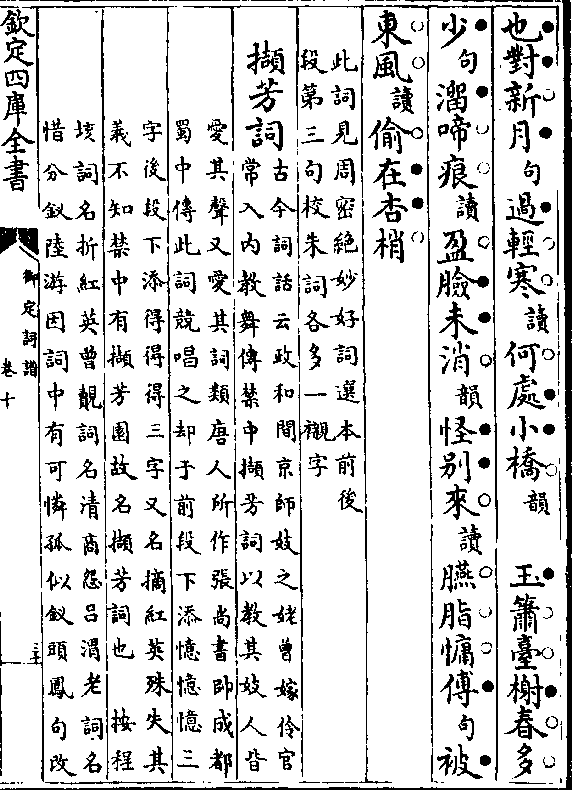 也對新月句過輕寒讀何處小橋韻　玉簫臺榭春多
少句溜啼痕讀盈臉未消韻怪别來讀臙脂慵傅句被
東風讀偷在杏梢
此詞見周密絶妙好詞選本前後
段第三句校朱詞各多一襯字
擷芳詞
古今詞話云政和間京師妓之姥曾嫁伶官
常入内教舞傳禁中擷芳詞以教其妓人皆
愛其聲又愛其詞類唐人所作張尚書帥成都
蜀中傳此詞競唱之却于前段下添憶憶憶三
字後段下添得得得三字又名摘紅英殊失其
義不知禁中有擷芳園故名擷芳詞也　按程
垓詞名折紅英曾覿詞名清商怨吕渭老詞名
惜分釵陸游因詞中有可憐孤似釵頭鳳句改
欽定四庫全書
御定詞譜
卷十